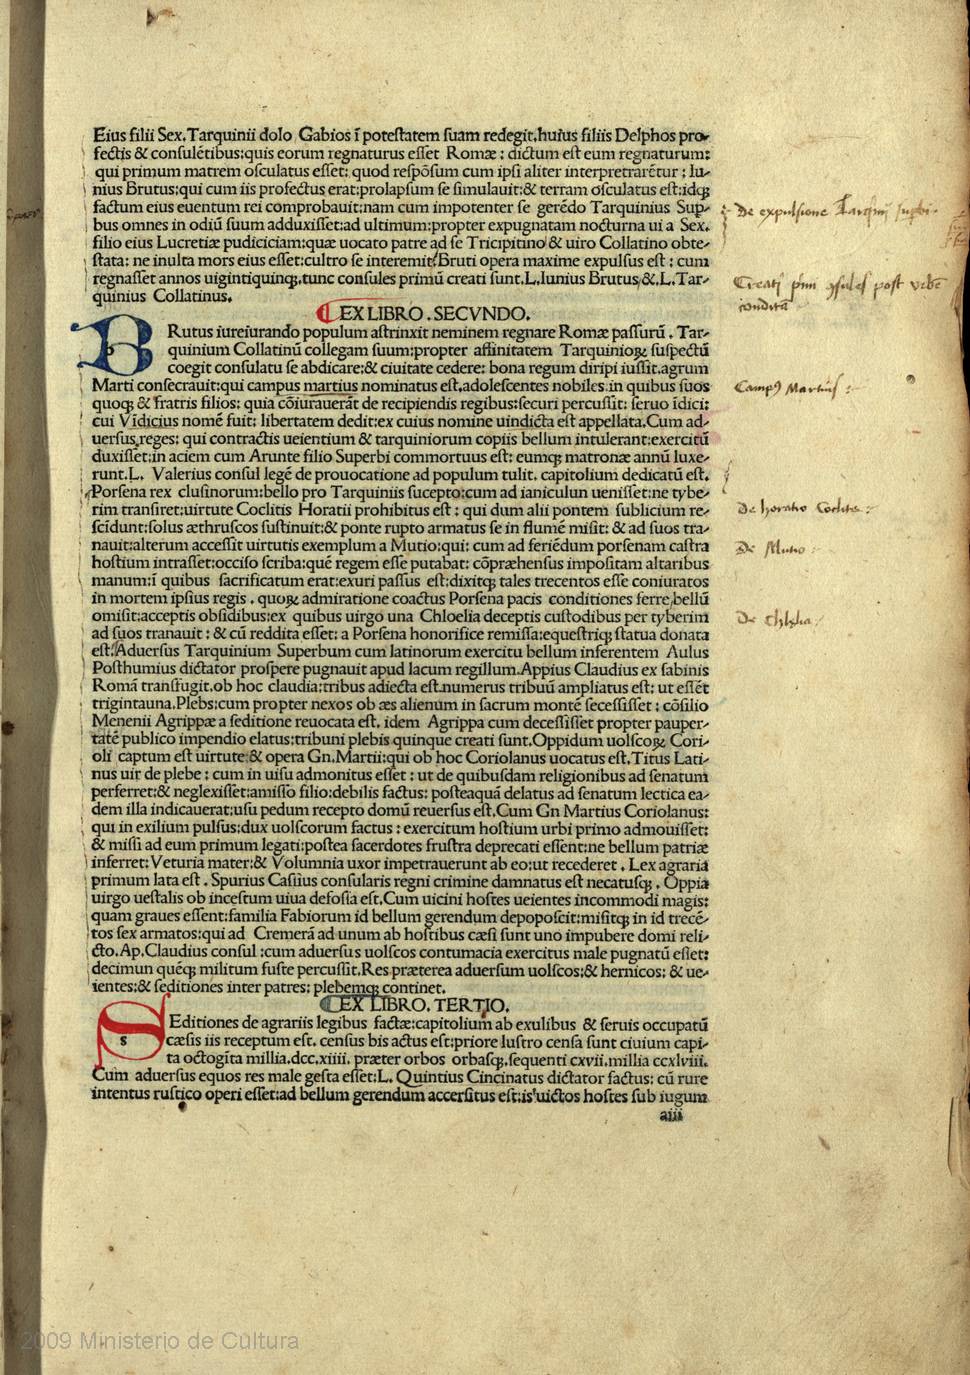 Eius filii Sex.Tarquinii dolo Gabios ī poteſtatem ſuam redegit.huius filiis Delphos pro-
fectis & conſulētibus:quis eorum regnaturus eſſet Romæ : dictum eſt eum regnaturum:
qui primum matrem oſculatus eſſet: quod reſpōſum cum ipſi aliter interpretrarētur : Iu-
nius Brutus:qui cum iis profectus erat:prolapſum ſe ſimulauit:& terram oſculatus eſt:idqꝫ
factum eius euentum rei comprobauit:nam cum impotenter ſe gerēdo Tarquinius Sup-
bus omnes in odiū ſuum adduxiſſet:ad ultimum:propter expugnatam nocturna ui a Sex.
filio eius Lucretiæ pudiciciam:quæ uocato patre ad ſe Tricipitino & uiro Collatino obte-
ſtata: ne inulta mors eius eſſet:cultro ſe interemit.Bruti opera maxime expulſus eſt : cum
regnaſſet annos uigintiquinqꝫ.tunc conſules primū creati ſunt.L.Iunius Brutus,&.L.Tar-
quinius Collatinus.
EX LIBRO . SECVNDO.
BRutus iureiurando populum aſtrinxit neminem regnare Romæ paſſurū . Tar-
quinium Collatinū collegam ſuum:propter affinitatem Tarquinioꝝ ſuſpectū
coegit conſulatu ſe abdicare:& ciuitate cedere: bona regum diripi iuſſit.agrum
Marti conſecrauit:qui campus martius nominatus eſt.adoleſcentes nobiles.in quibus ſuos
quoqꝫ & fratris filios: quia cōiurauerāt de recipiendis regibus:ſecuri percuſſit: ſeruo īdici:
cui Vīdicius nomē fuit: libertatem dedit:ex cuius nomine uindicta eſt appellata.Cum ad-
uerſus reges: qui contractis ueientium & tarquiniorum copiis bellum intulerant:exercitū
duxiſſet:in aciem cum Arunte filio Superbi commortuus eſt: eumqꝫ matronæ annū luxe-
runt.L. Valerius conſul legē de prouocatione ad populum tulit. capitolium dedicatū eſt.
Porſena rex cluſinorum:bello pro Tarquiniis ſucepto:cum ad ianiculun ueniſſet:ne tybe-
rim tranſiret:uirtute Coclitis Horatii prohibitus eſt : qui dum alii pontem ſublicium re-
ſcīdunt:ſolus æthruſcos ſuſtinuit:& ponte rupto armatus ſe in flumē miſit: & ad ſuos tra-
nauit:alterum acceſſit uirtutis exemplum a Mutio:qui: cum ad feriēdum porſenam caſtra
hoſtium intraſſet:occiſo ſcriba:quē regem eſſe putabat: cōpræhenſus impoſitam altaribus
manum:ī quibus ſacrificatum erat:exuri paſſus eſt:dixitqꝫ tales trecentos eſſe coniuratos
in mortem ipſius regis . quoꝝ admiratione coactus Porſena pacis conditiones ferre,bellū
omiſit:acceptis obſidibus:ex quibus uirgo una Chloelia deceptis cuſtodibus per tyberim
ad ſuos tranauit : & cū reddita eſſet: a Porſena honorifice remiſſa:equeſtriqꝫ ſtatua donata
eſt.Aduerſus Tarquinium Superbum cum latinorum exercitu bellum inferentem Aulus
Poſthumius dictator proſpere pugnauit apud lacum regillum.Appius Claudius ex ſabinis
Romā tranſfugit.ob hoc claudia:tribus adiecta eſt.numerus tribuū ampliatus eſt: ut eſſēt
trigintauna.Plebs:cum propter nexos ob æs alienum in ſacrum montē ſeceſſiſſet : cōſilio
Menenii Agrippæ a ſeditione reuocata eſt. idem Agrippa cum deceſſiſſet propter pauper-
tatē publico impendio elatus:tribuni plebis quinque creati ſunt.Oppidum uolſcoꝝ Cori-
oli captum eſt uirtute & opera Gn.Martii:qui ob hoc Coriolanus uocatus eſt.Titus Lati-
nus uir de plebe : cum in uiſu admonitus eſſet : ut de quibuſdam religionibus ad ſenatum
perferret:& neglexiſſet:amiſſo filio:debilis factus: poſteaquā delatus ad ſenatum lectica ea-
dem illa indicauerat:uſu pedum recepto domū reuerſus eſt.Cum Gn Martius Coriolanus:
qui in exilium pulſus:dux uolſcorum factus : exercitum hoſtium urbi primo admouiſſet:
& miſſi ad eum primum legati:poſtea ſacerdotes fruſtra deprecati eſſent:ne bellum patriæ
inferret:Veturia mater:& Volumnia uxor impetrauerunt ab eo:ut recederet . Lex agraria
primum lata eſt . Spurius Caſſius conſularis regni crimine damnatus eſt necatuſqꝫ . Oppia
uirgo ueſtalis ob inceſtum uiua defoſſa eſt.Cum uicini hoſtes ueientes incommodi magis:
quam graues eſſent:familia Fabiorum id bellum gerendum depopoſcit:miſitqꝫ in id trecē-
tos ſex armatos:qui ad Cremerā ad unum ab hoſtibus cæſi ſunt uno impubere domi reli-
cto.Ap.Claudius conſul :cum aduerſus uolſcos contumacia exercitus male pugnatū eſſet:
decimun quēqꝫ militum fuſte percuſſit.Res præterea aduerſum uolſcos:& hernicos: & ue-
ientes:& ſeditiones inter patres: plebemqꝫ continet.
EX LIBRO. TERTIO.
SEditiones de agrariis legibus factæ:capitolium ab exulibus & ſeruis occupatū
cæſis iis receptum eſt. cenſus bis actus eſt:priore luſtro cenſa ſunt ciuium capi-
ta octogīta millia.dcc.xiiii. præter orbos orbaſqꝫ.ſequenti cxvii.millia ccxlviii.
Cum aduerſus equos res male geſta eſſet:L. Quintius Cincinatus dictator factus: cū rure
intentus ruſtico operi eſſet:ad bellum gerendum accerſitus eſt:is uictos hoſtes ſub iugum
aiii
De expulsione Tarquinij superbi.
Creati primi consules post urbē
conditā
Campus Martius :
De horatio Coclite :
De Mutio :
De Chlelia.
2009 Ministerio de Cultura